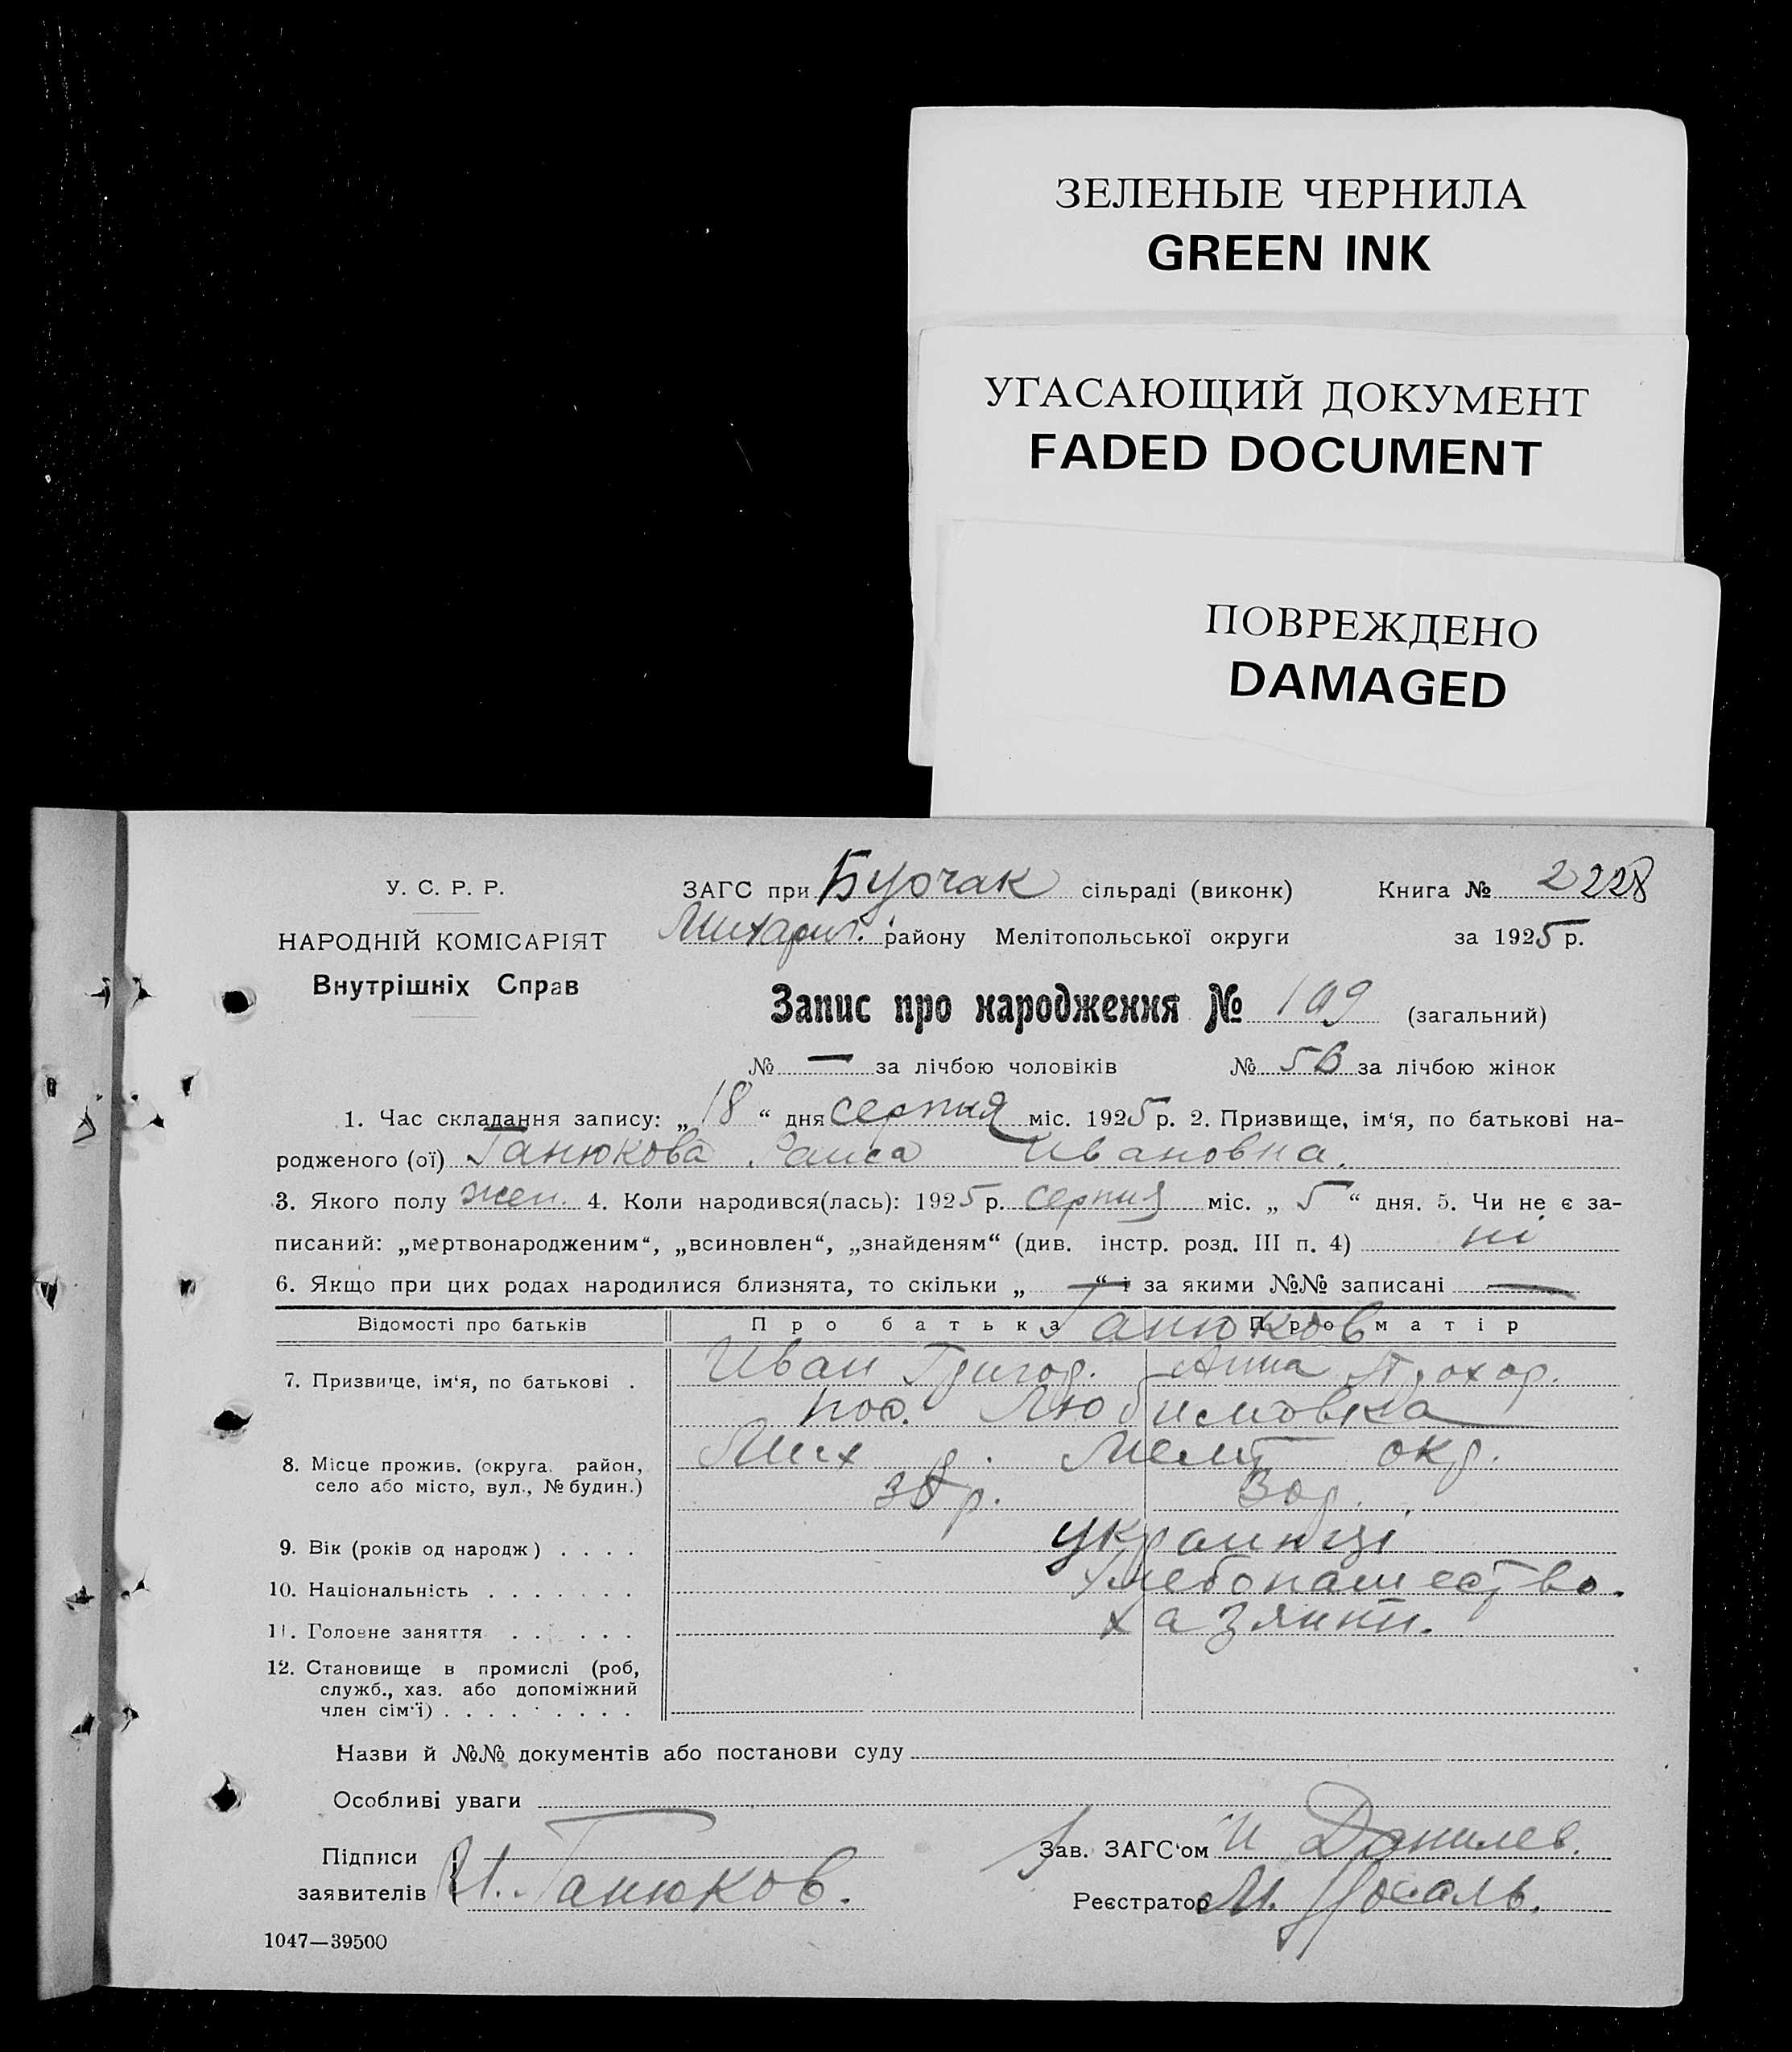 ЗЕЛЕНЫЕ ЧЕРНИЛА
GREEN INK
УГАСАЮЩИЙ ДОКУМЕНТ
FADED DOCUMENT
ПОВРЕЖДЕНО
DAMAGED
У. С. Р. Р.
НАРОДНІЙ КОМІСАРІЯТ
Внутрішніх Справ
ЗАГС при Бурчак сільраді (виконк) Книга № 2 228
района Мелітопольської округи за 1925 р.
Запис про народження № 109 (загальний)
№ — за лічбою чоловіків № 56 за лічбою жінок
1. Час складання запису: „18“ дня серпня міс. 1925 р. 2. Призвище, ім'я, по батькові на-
родженого (ої) Ганюкова Раиса Ивановна.
3. Якого полу жен. 4. Коли народився(лась): 1925 р. серпня міс. „5“ дня. 5. Чи не є за-
писаний: „мертвонародженим“, „всиновлен“, „знайденям“ (див. інстр. розд. III п. 4) ні
6. Якщо при цих родах народилися близнята, то скільки „—“ і за якими №№ записані —
Відомості про батьків Про батька Про матір
Ганюков
7. Призвище, ім'я, по батькові . Иван Григор. Анна Прохор.
пос. Любимовка
8. Місце прожив. (округа, район, село або місто, вул., № будин.) Мих р. Меліт окр.
9. Вік (років од народж) . . . . 38 р. 30 р.
10. Національність . . . . . . . українці
11. Головне заняття . . . . . . Хлебопашество.
12. Становище в промислі (роб, служб., хаз. або допоміжний член сім'ї) . . . . . . . . . хазяини.
Назви й №№ документів або постанови суду
Особливі уваги
Підписи заявителів И. Ганюков.
Зав. ЗАГС'ом И Данилев.
Реєстратор М. Носаль.
1047—39500